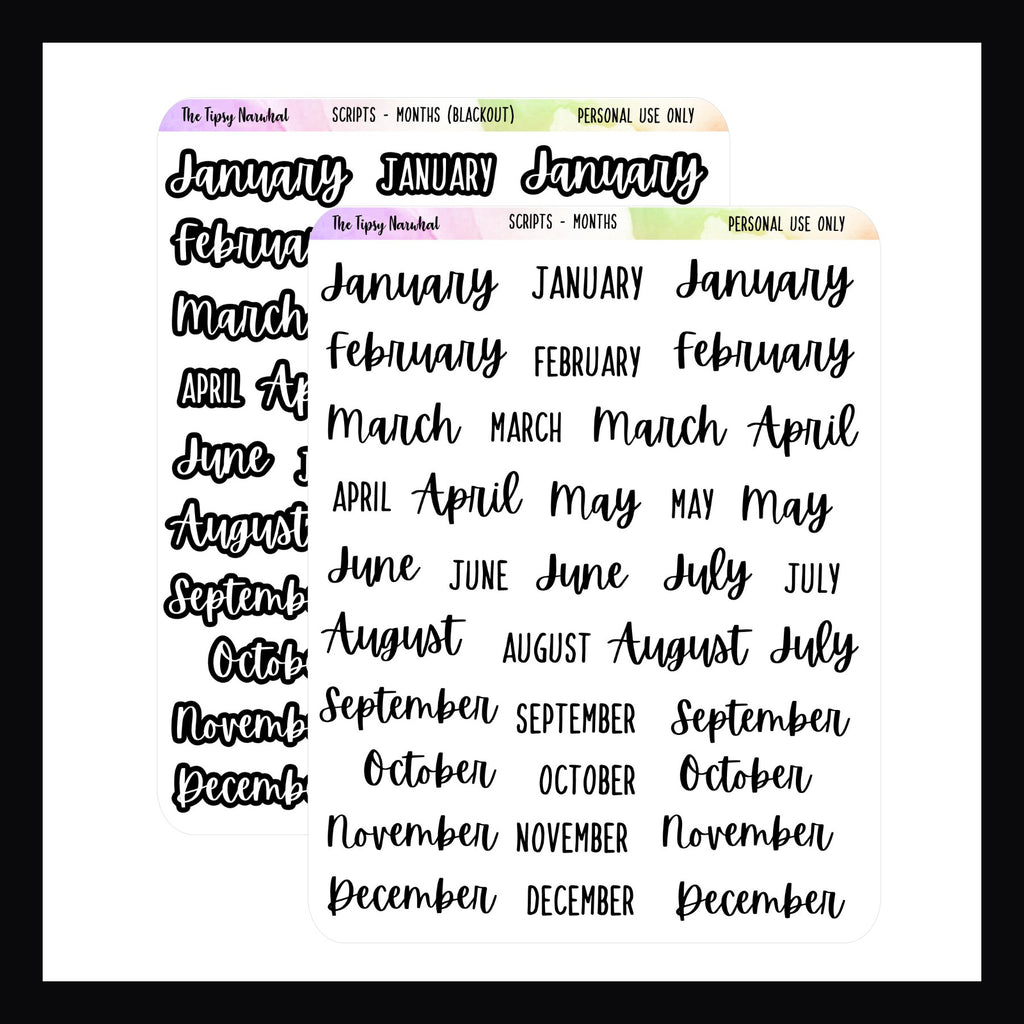 The Tipsy Narwhal SCRIPTS - MONTHS (BLACKOUT) PERSONAL USE ONLY
January JANUARY January
March
APRIL
June
August
The Tipsy Narwhal SCRIPTS - MONTHS PERSONAL USE ONLY
January JANUARY January
February FEBRUARY February
March MARCH March April
APRIL April May MAY May
June JUNE June July JULY
August AUGUST August July
September SEPTEMBER September
October OCTOBER October
November NOVEMBER November
December DECEMBER December